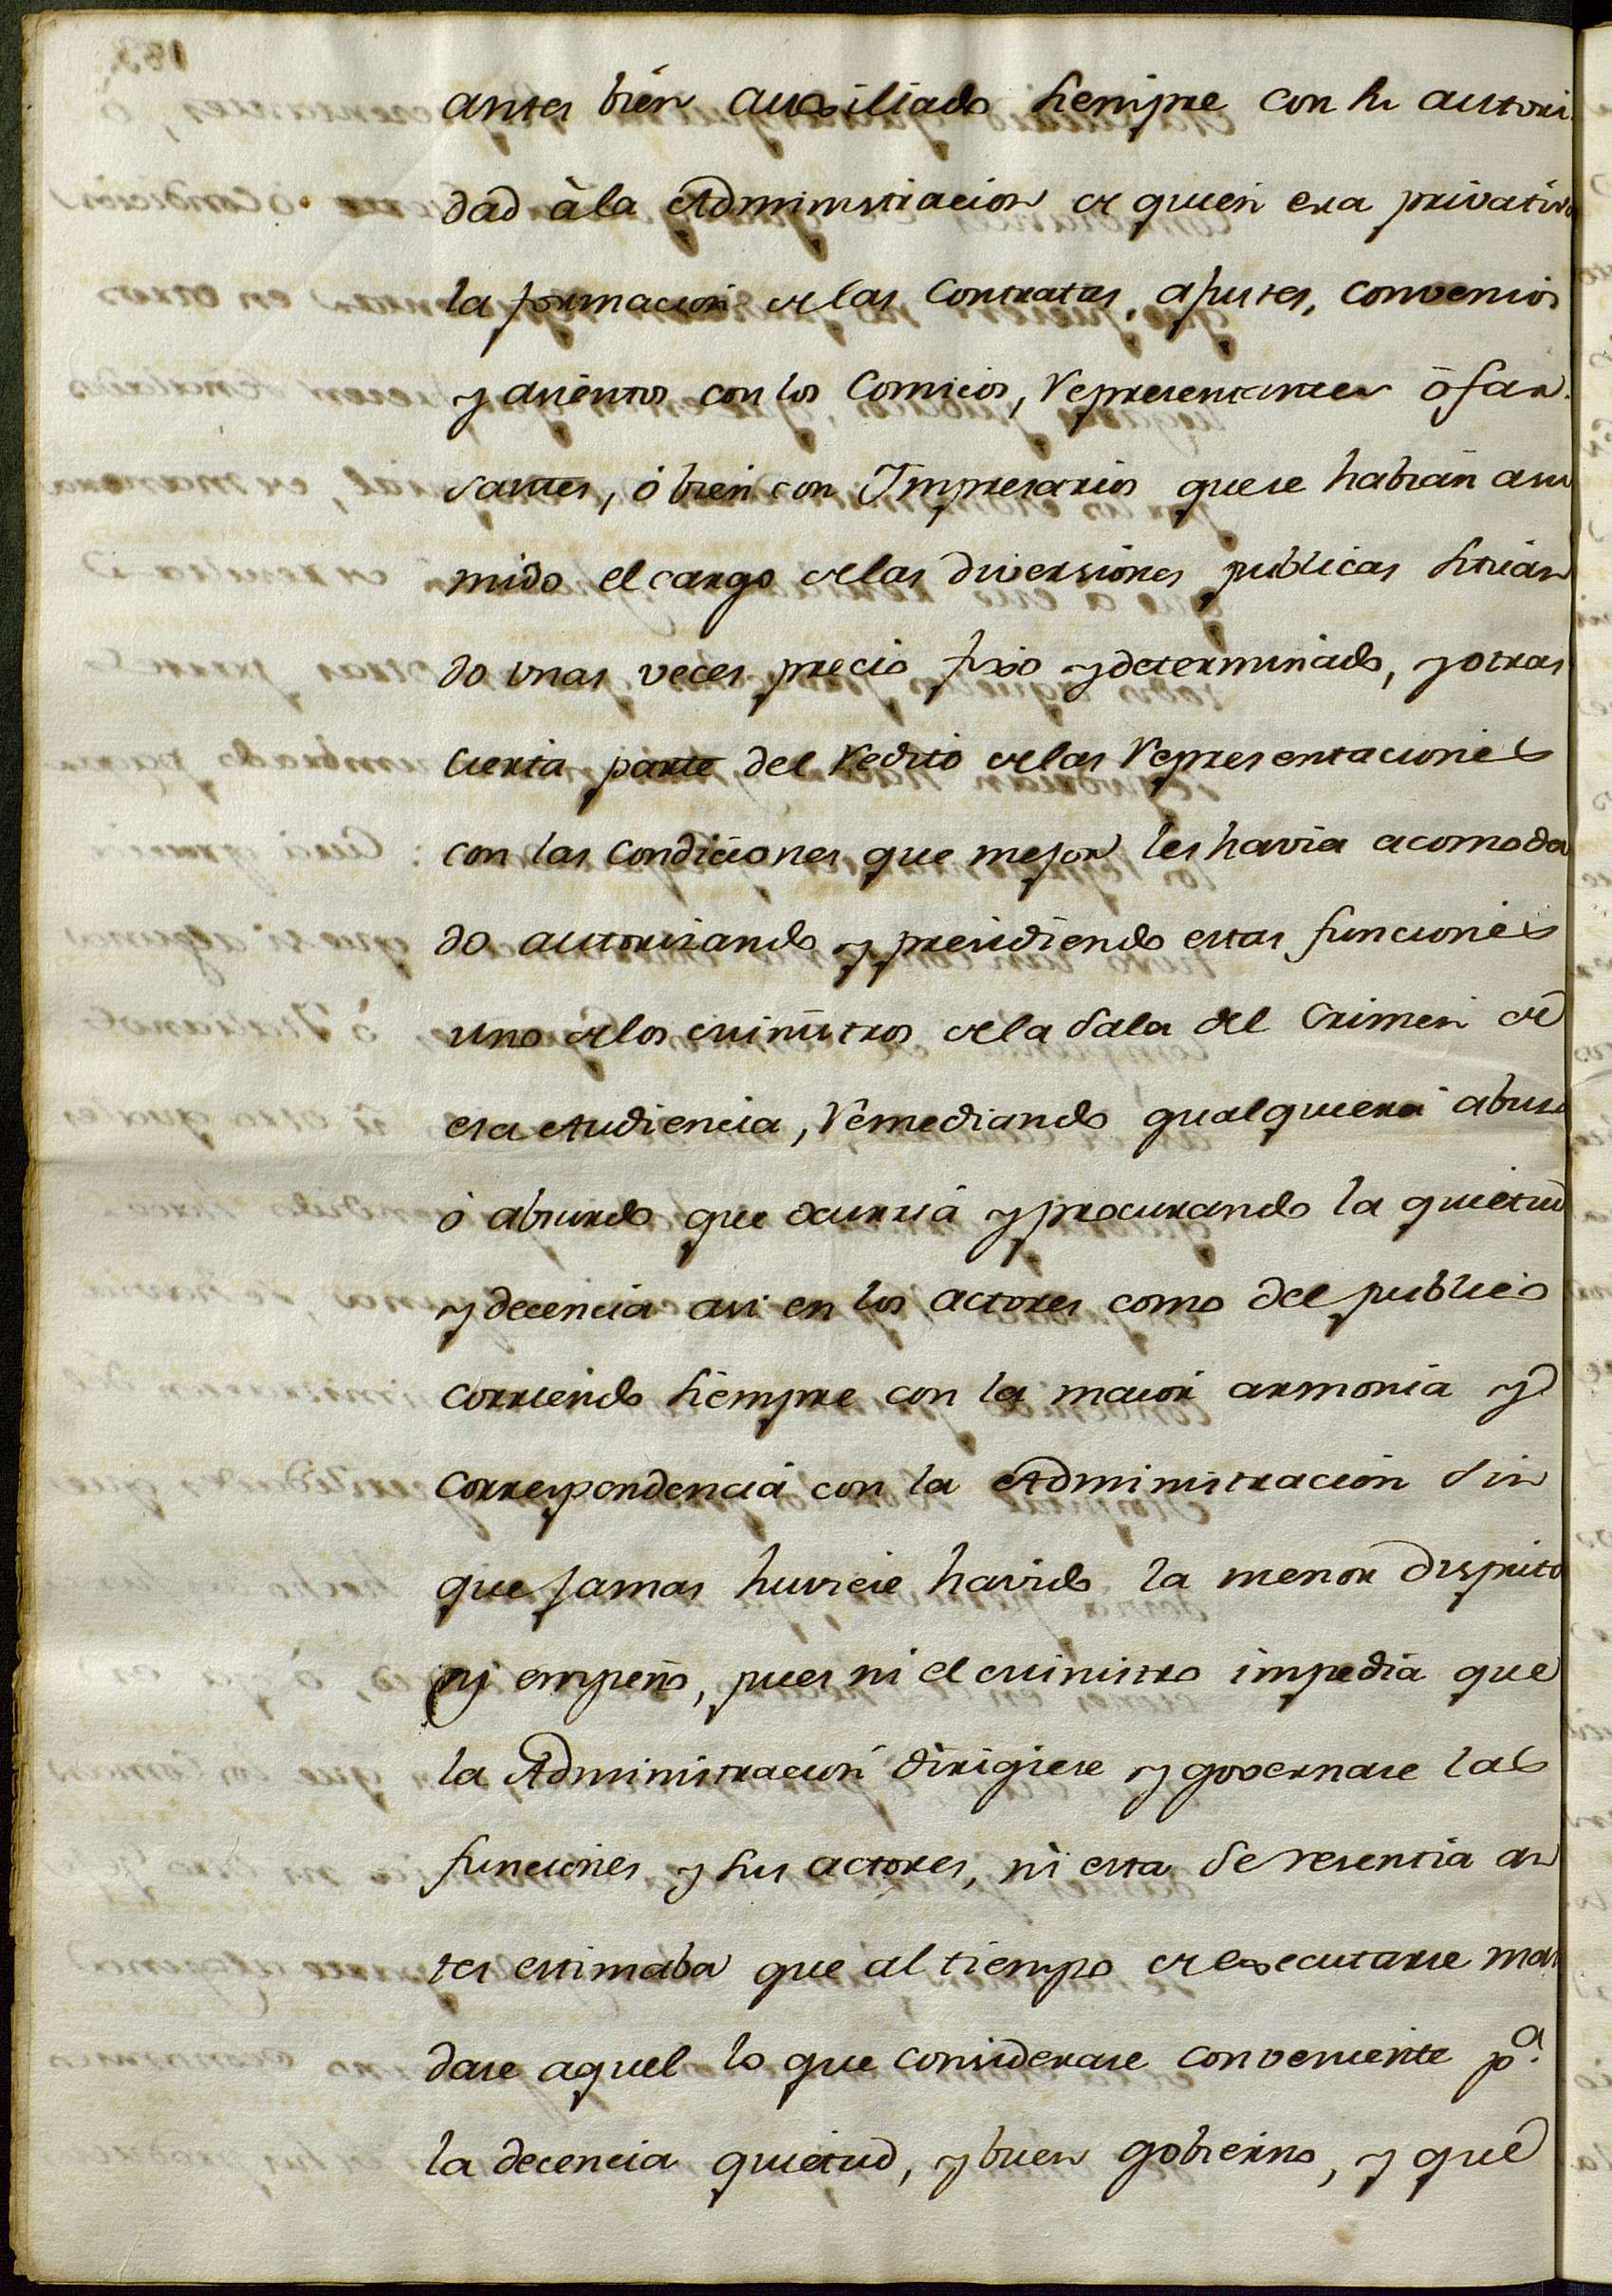 antes bien auxiliado siempre con su autori
dad à la Administracion de quien era privativo
la formacion de las Contratas, ajustes, convenios
y asientos con los Comicos, Representantes ó far
santes, ó bien con Impresarios que se habian asu
mido el cargo de las diversiones publicas situan
do unas veces precio fixo y determinado, y otras
cierta parte del Redito de las Representaciones
con las condiciones que mejor les havia acomoda
do autorizando y presidiendo estas funciones
uno de los Ministros de la Sala del Crimen de
esa Audiencia, Remediando qualquiera abuso
ó absurdo que ocurria y procurando la quietud
y decencia asi en los actores como del publico
corriendo siempre con la maior armonia y
correspondencia con la Administracion sin
que jamas huviese havido la menor disputa
ni empeño, pues ni el Ministro impedia que
la Administracion dirigiese y governase las
funciones y sus actores, ni esta se resentia an
tes estimaba que al tiempo de executarse man
dase aquel lo que considerase conveniente pª.
la decencia quietud, y buen gobierno, y que